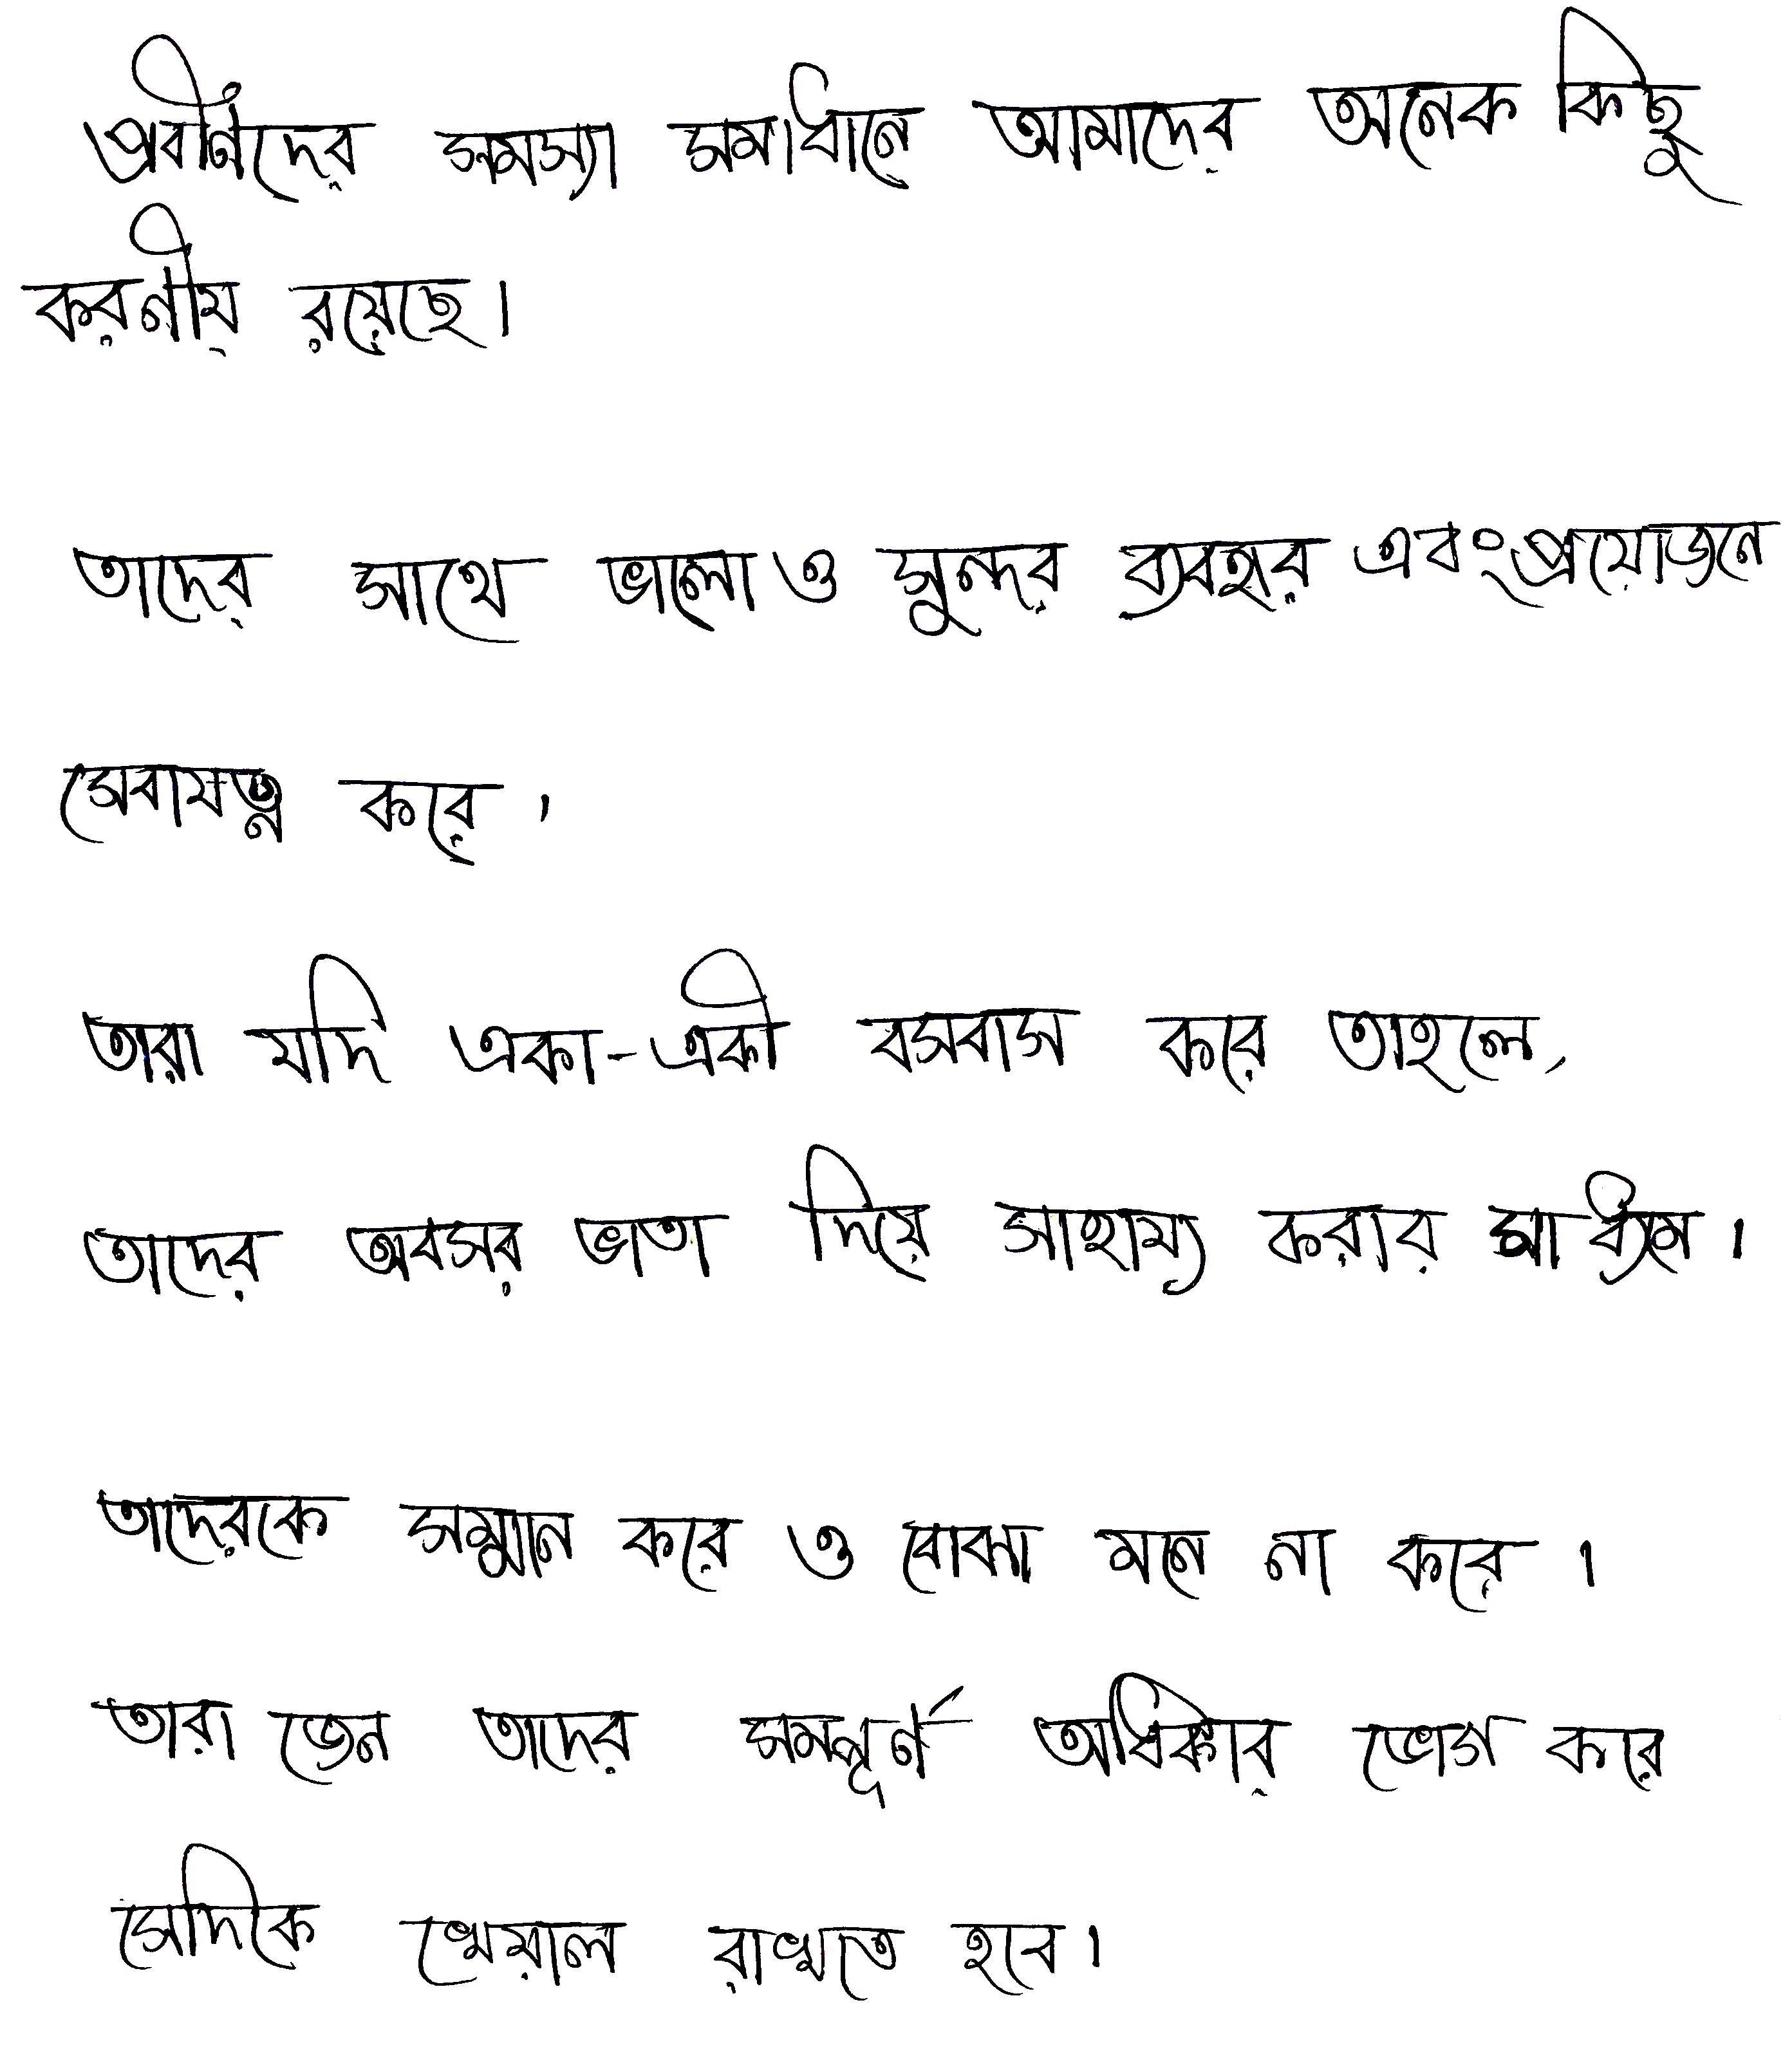 প্রবীণদের সমস্যা সমাধানে আমাদের অনেক কিছু
করণীয় রয়েছে।
তাদের সাথে ভালো ও সুন্দর ব্যবহার এবং প্রয়োজনে
সেবাযত্ন করে।
তারা যদি একা-একী বসবাস করে তাহলে,
তাদের অবসর ভাতা দিয়ে সাহায্য করার মাধ্যমে।
তাদেরকে সম্মান করে ও বোঝা মনে না করে।
তারা জেন তাদের সমপূর্ণ অধিকার ভোগ করে
সেদিকে খেয়াল রাখতে হবে।